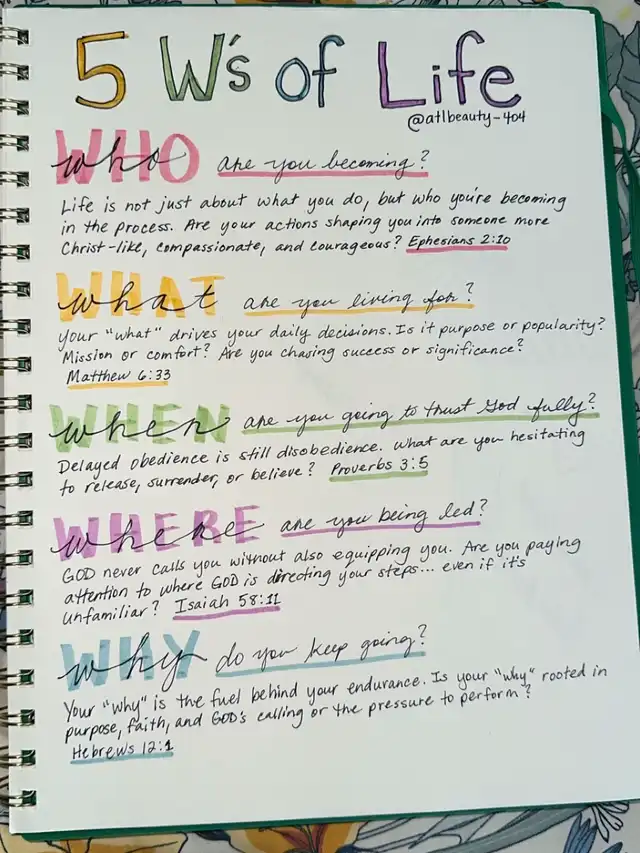 5 W's of Life
@atlbeauty-404
WHO who are you becoming?
Life is not just about what you do, but who you're becoming
in the process. Are your actions shaping you into someone more
Christ-like, compassionate, and courageous? Ephesians 2:10
WHAT what are you living for?
Your "what" drives your daily decisions. Is it purpose or popularity?
Mission or comfort? Are you chasing success or significance?
Matthew 6:33
WHEN when are you going to trust God fully?
Delayed obedience is still disobedience. What are you hesitating
to release, surrender, or believe? Proverbs 3:5
WHERE where are you being led?
GOD never calls you without also equipping you. Are you paying
attention to where GOD is directing your steps... even if it's
unfamiliar? Isaiah 58:11
WHY why do you keep going?
Your "why" is the fuel behind your endurance. Is your "why" rooted in
purpose, faith, and GOD's calling or the pressure to perform?
Hebrews 12:1